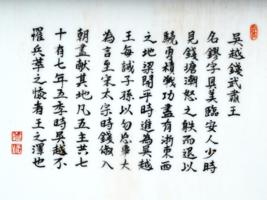 吳越錢武肅王
名鏐字具美臨安人少時
見錢塘潮怒之射而退以
驍勇積戰功盡有浙東西
之地梁開平時進為吳越
王每誡子孫以勿忘事大
為言至宋太宗時錢俶入
朝盡獻其地凡五主共七
十有七年五季時吳越不
罹兵革之慘者王之澤也